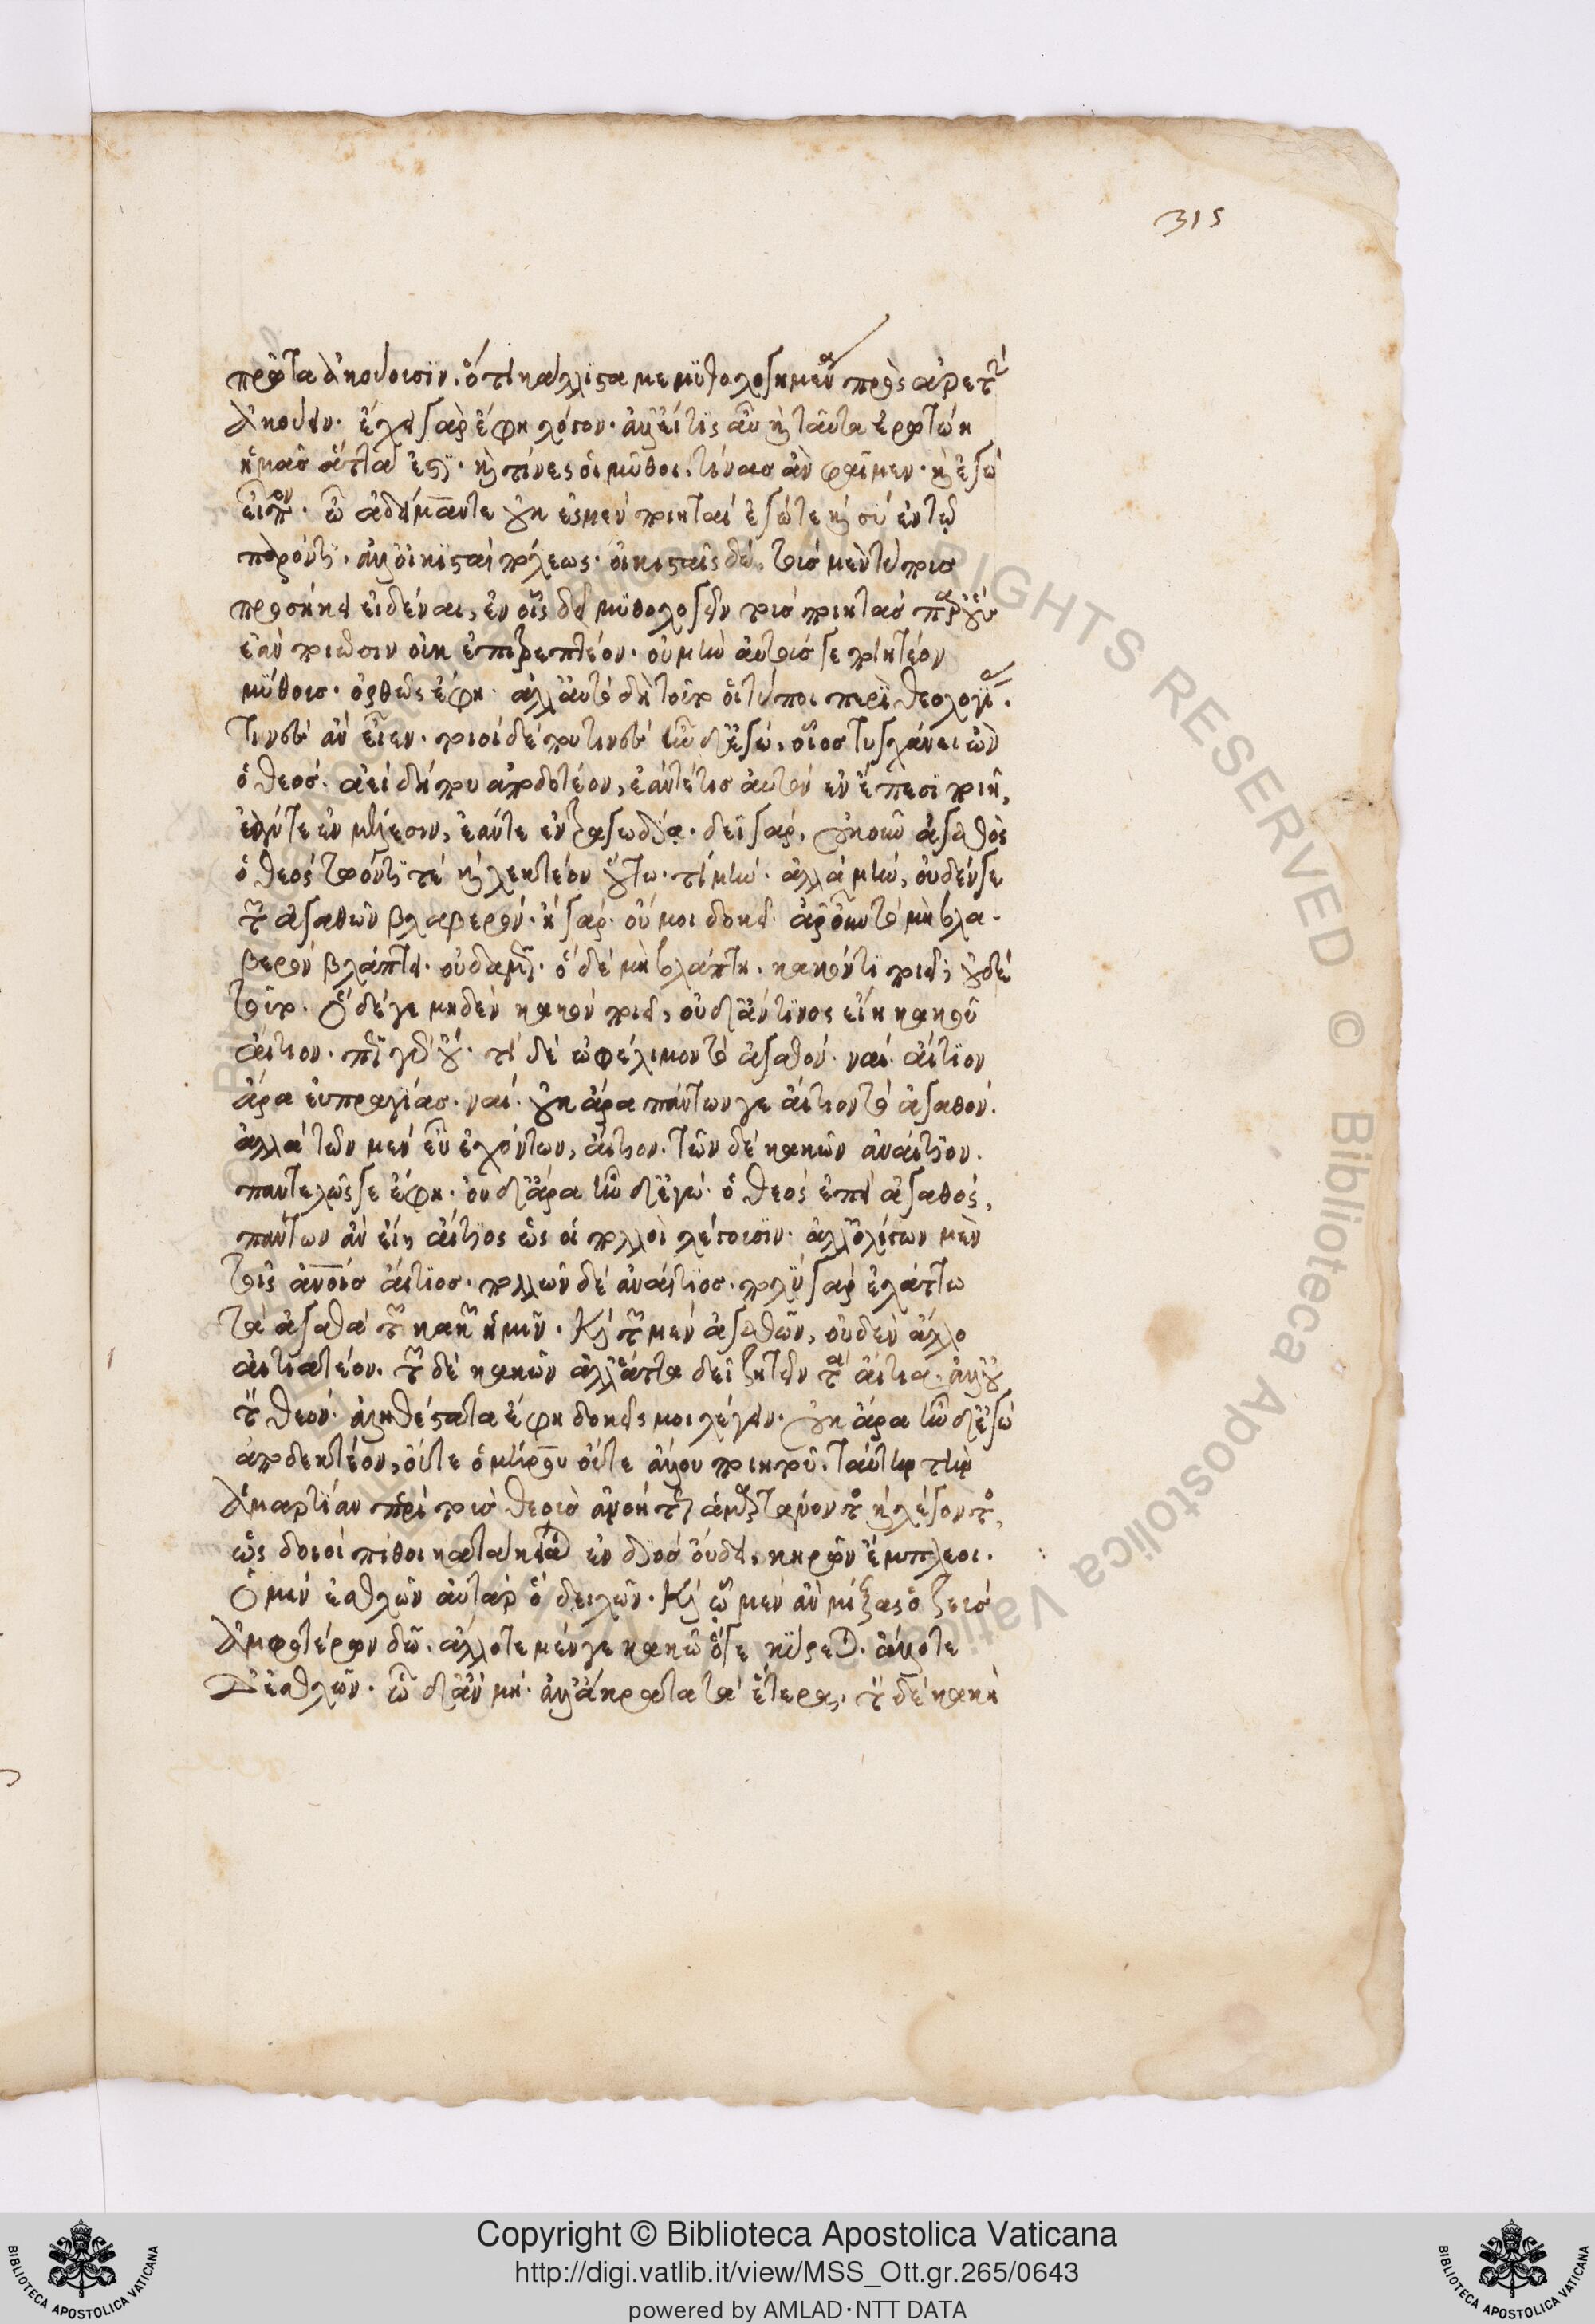 315
πρῶτα ἀκούουσιν, ὅτι κάλλιστα μεμυθολογημένα πρὸς ἀρετὴν
ἀκούειν. ἔχει γὰρ ἔφη λόγον. ἀλλ' εἴ τις αὖ καὶ ταῦτα ἐρωτῴη
ἡμᾶς ἅττα ἐστί. καὶ τίνες οἱ μῦθοι, τίνας ἂν φαῖμεν. καὶ ἐγὼ
εἶπον. ὦ ἀδείμαντε οὐκ ἐσμὲν ποιηταὶ ἐγώ τε καὶ σὺ ἐν τῷ
παρόντι, ἀλλ' οἰκισταὶ πόλεως. οἰκισταῖς δὲ, τοὺς μὲν τύπους
προσήκει εἰδέναι, ἐν οἷς δεῖ μυθολογεῖν τοὺς ποιητὰς παρ' οὓς
ἐὰν ποιῶσιν οὐκ ἐπιτρεπτέον. οὐ μὴν αὐτοῖς γε ποιητέον
μύθους. ὀρθῶς ἔφη. ἀλλ' αὐτὸ δὴ τοῦτο οἱ τύποι περὶ θεολογίας.
τίνες ἂν εἶεν. τοιοίδε που τινες ἦν δ' ἐγώ, οἷος τυγχάνει ὢν
ὁ θεός. ἀεὶ δήπου ἀποδοτέον, ἐάν τέ τις αὐτὸν ἐν ἔπεσι ποιῇ,
ἐάν τε ἐν μέλεσιν, ἐάν τε ἐν τραγωδίᾳ. δεῖ γάρ, οὐκοῦν ἀγαθὸς
ὁ θεὸς τῷ ὄντι τὲ καὶ λεκτέον οὕτω. τί μήν. ἀλλὰ μὴν, οὐδέν γε
τῶν ἀγαθῶν βλαβερόν. ἢ γάρ. οὔ μοι δοκεῖ. ἆρ' οὖν ὃ μὴ βλα-
βερὸν βλάπτει. οὐδαμῶς. ὃ δὲ μὴ βλάπτει. κακόν τι ποιεῖ; οὐδὲ
τοῦτο. ὃ δέ γε μηδὲν κακὸν ποιεῖ, οὐδ' ἄν τινος εἴη κακοῦ
αἴτιον. πῶς γὰρ οὔ. τί δὲ ὠφέλιμον τὸ ἀγαθόν. ναί. αἴτιον
ἄρα εὐπραγίας. ναί. οὐκ ἄρα πάντων γε αἴτιον τὸ ἀγαθόν.
ἀλλὰ τῶν μὲν εὖ ἐχόντων, αἴτιον. τῶν δὲ κακῶν ἀναίτιον.
παντελῶς γε ἔφη. οὐδ' ἄρα ἦν δ' ἐγώ. ὁ θεὸς ἐπεὶ ἀγαθός,
πάντων ἂν εἴη αἴτιος ὡς οἱ πολλοὶ λέγουσιν. ἀλλ' ὀλίγων μὲν
τοῖς ἀνοις αἴτιος. πολλῶν δὲ ἀναίτιος. πολὺ γὰρ ἐλάττω
τὰ ἀγαθὰ τῶν κακῶν ἡμῖν. Καὶ τῶν μὲν ἀγαθῶν, οὐδὲν ἄλλο
αἰτιατέον. τῶν δὲ κακῶν ἀλλ' ἄττα δεῖ ζητεῖν τὰ αἴτια, ἀλλ' οὐ
τὸν θεόν. ἀληθέστατα ἔφη δοκεῖς μοι λέγειν. οὐκ ἄρα ἦν δ' ἐγὼ
ἀποδεκτέον, οὔτε ὁμήρου οὔτε ἄλλου ποιητοῦ. ταύτην τὴν
ἁμαρτίαν περὶ τοὺς θεοὺς ἀνοήτως ἁμαρτάνοντος καὶ λέγοντος,
ὡς δοιοὶ πίθοι κατακείαται ἐν διὸς οὔδει, κηρῶν ἔμπλεοι.
Ὁ μὲν ἐσθλῶν αὐτὰρ ὃ δειλῶν. Καὶ ᾧ μὲν ἂν μίξας ὁ ζεὺς
ἀμφοτέρων δῷ. ἄλλοτε μέν γε κακῷ ὅγε κύρεται. ἄλλοτε
δ' ἐσθλῶν. ᾧ δ' ἂν μή. ἀλλ' ἄκρατα τὰ ἕτερα, τὸν δὲ κακὴ
Copyright © Biblioteca Apostolica Vaticana
http://digi.vatlib.it/view/MSS_Ott.gr.265/0643
powered by AMLAD·NTT DATA